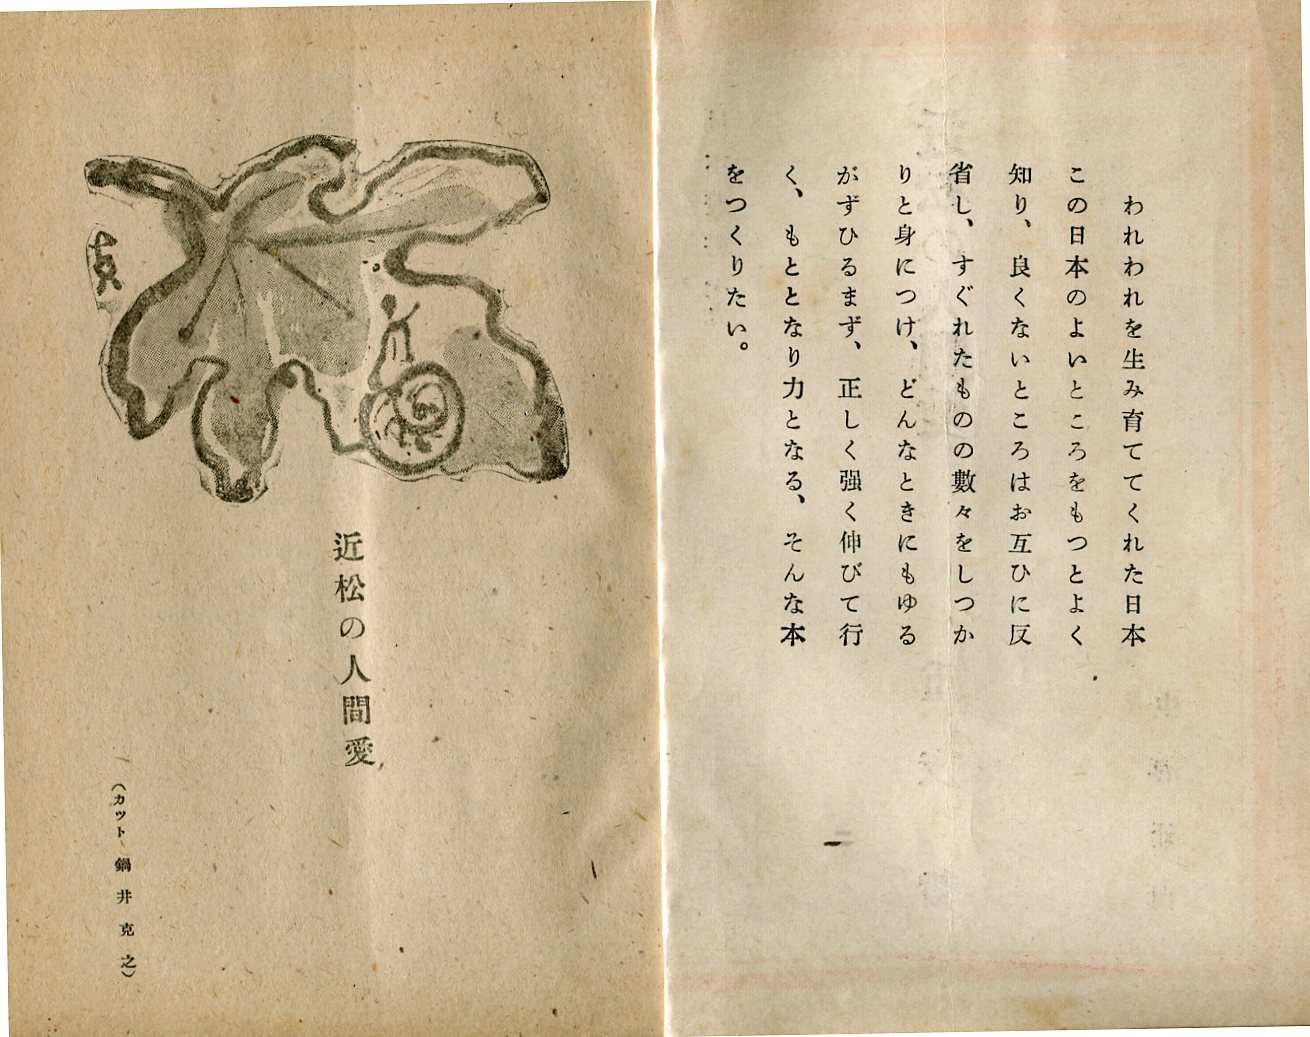 われわれを生み育ててくれた日本
この日本のよいところをもつとよく
知り、良くないところはお互ひに反
省し、すぐれたものの數々をしつか
りと身につけ、どんなときにもゆる
がずひるまず、正しく强く伸びて行
く、もととなり力となる、そんな本
をつくりたい。
近松の人間愛
(カット 鍋井克之)